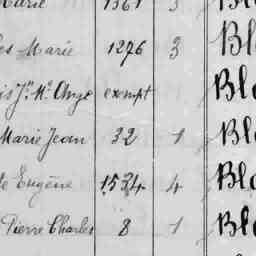 Marie 1361 3 Bl
es Marie 1276 3 Bl
is Jn Me Ange exempt Blo
Marie Jean 32 1 Blo
te Eugène 1534 4 Blo
Pierre Charles 8 1 Blo